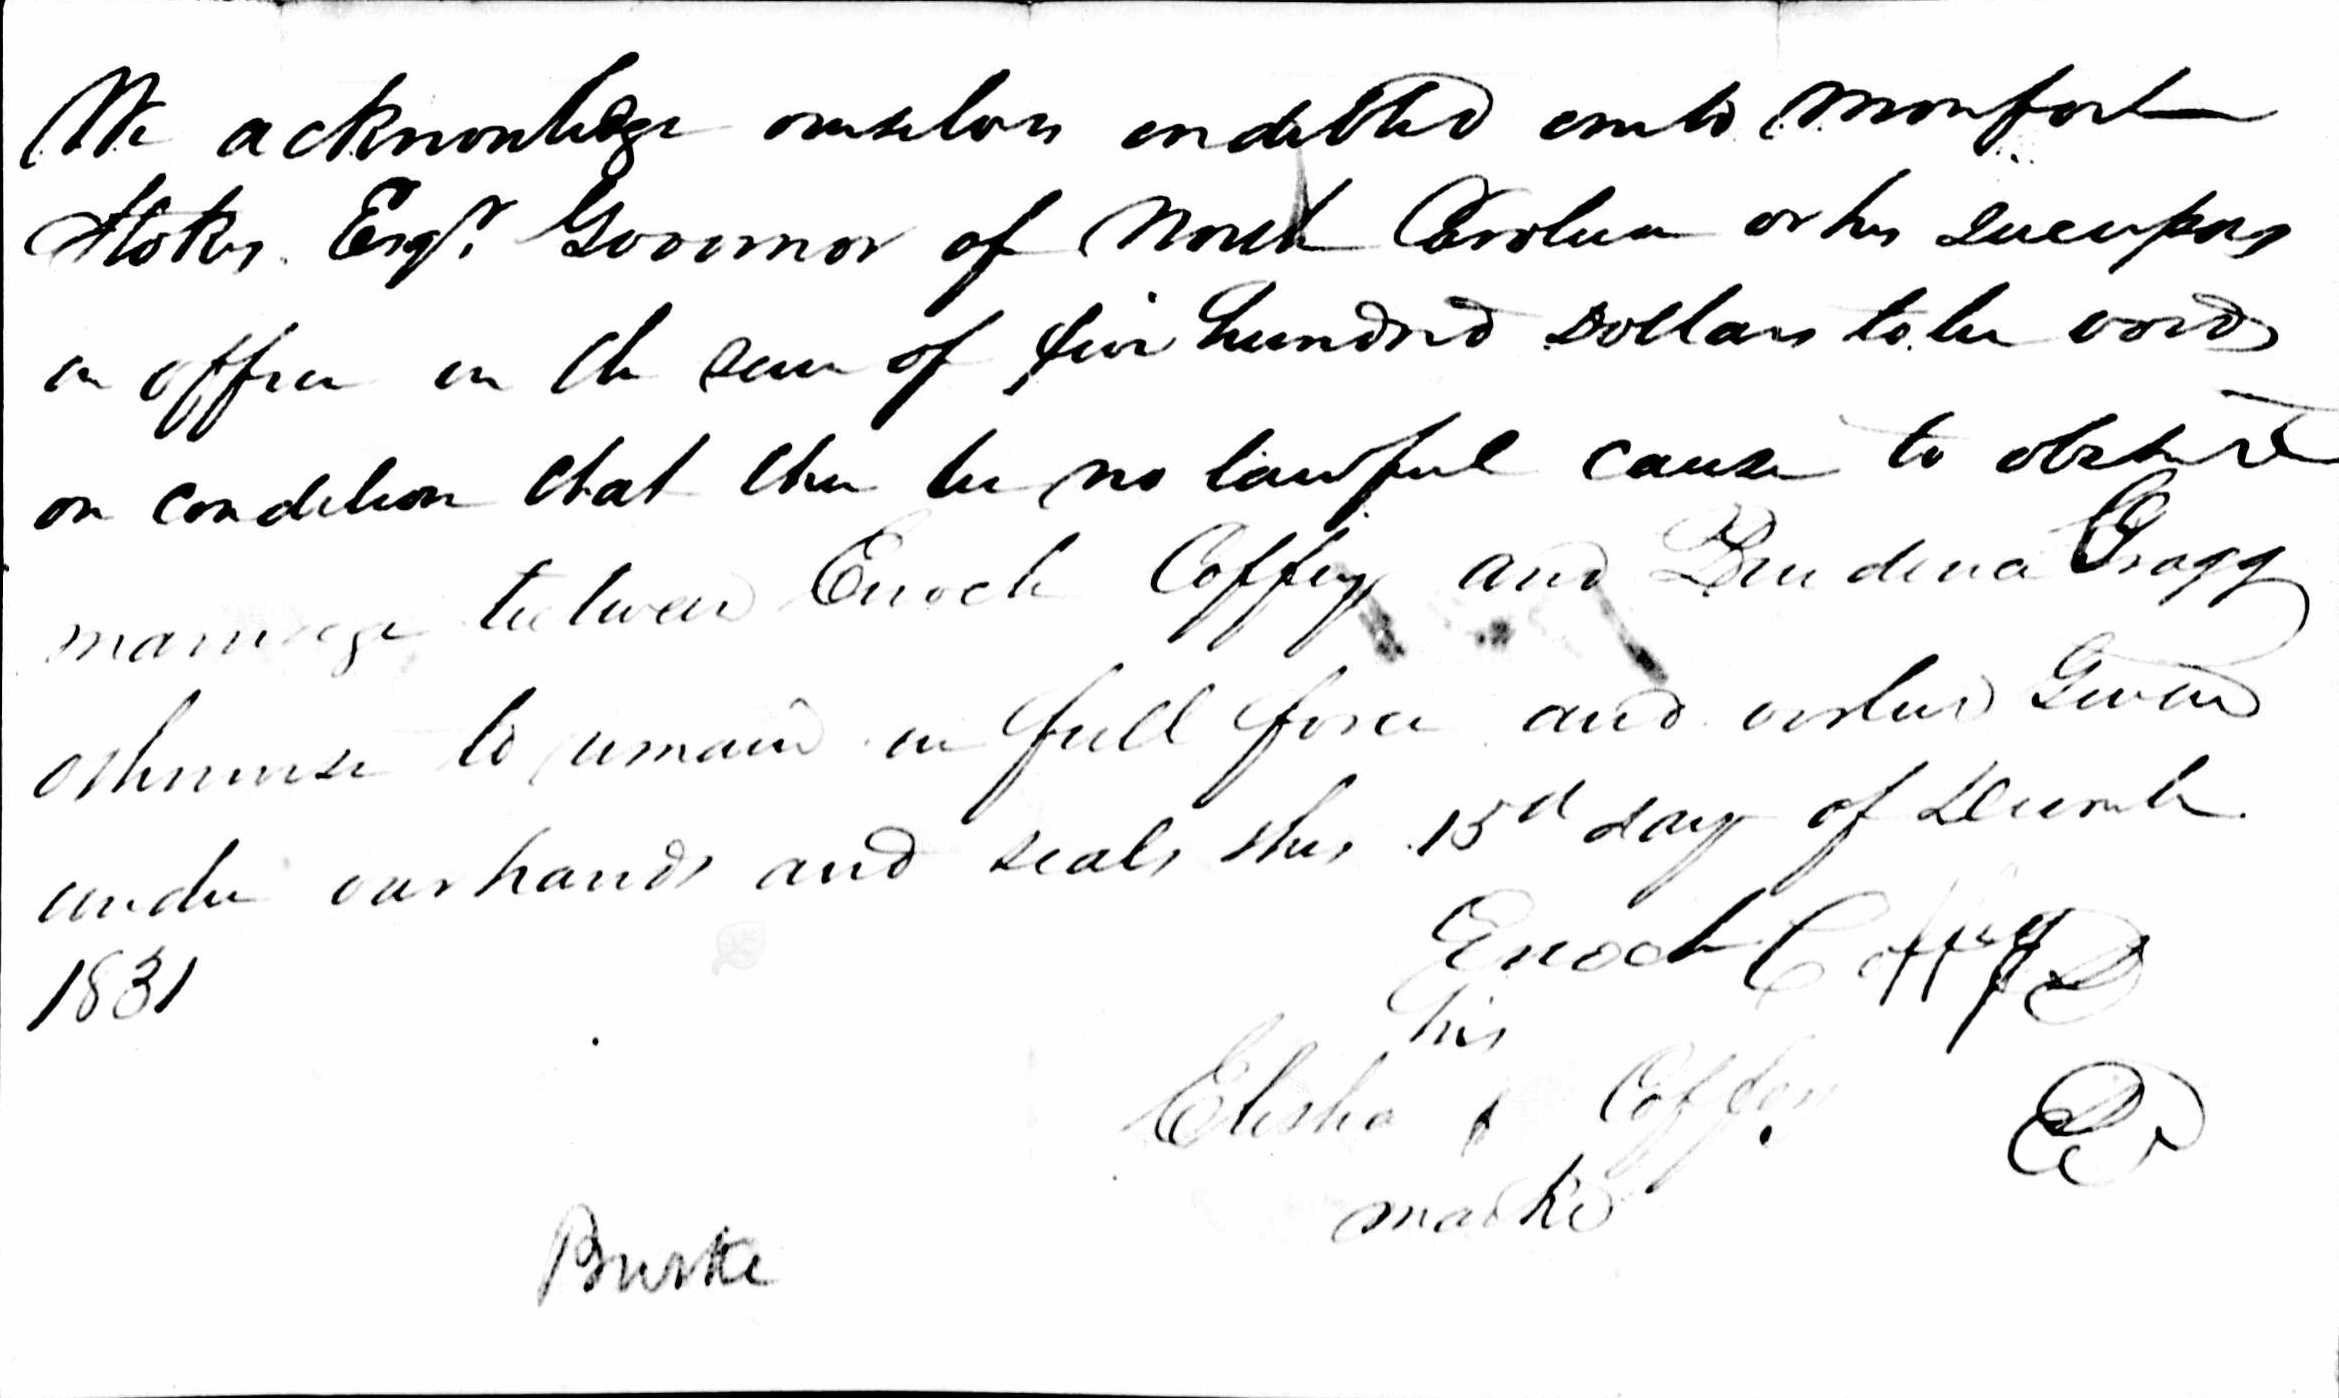 We acknowledge ourselves indebted unto Monfort
Stokes Esqr. Governor of North Carolina or his sucessors
in office in the sum of five hundred Dollars to be void
on condition that ther be no lawful cause to obstruct
marriage between Enoch Coffey and Prudence Gragg
otherwise to remain in full force and virtue Given
under our hands and seals this 15d day of Decemb
1831
Enoch Coffey
his
Elisha Coffey
marke
Burke